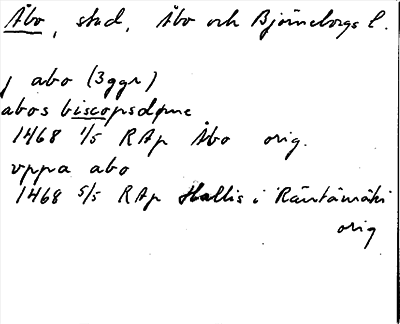 Åbo, stad, Åbo och Björneborgs l.
j abo (3ggr)
abos biscopsdøme
1468 1/5 RAp Åbo orig.
vppa abo
1468 5/5 RAp Hallis i Räntämäki
orig